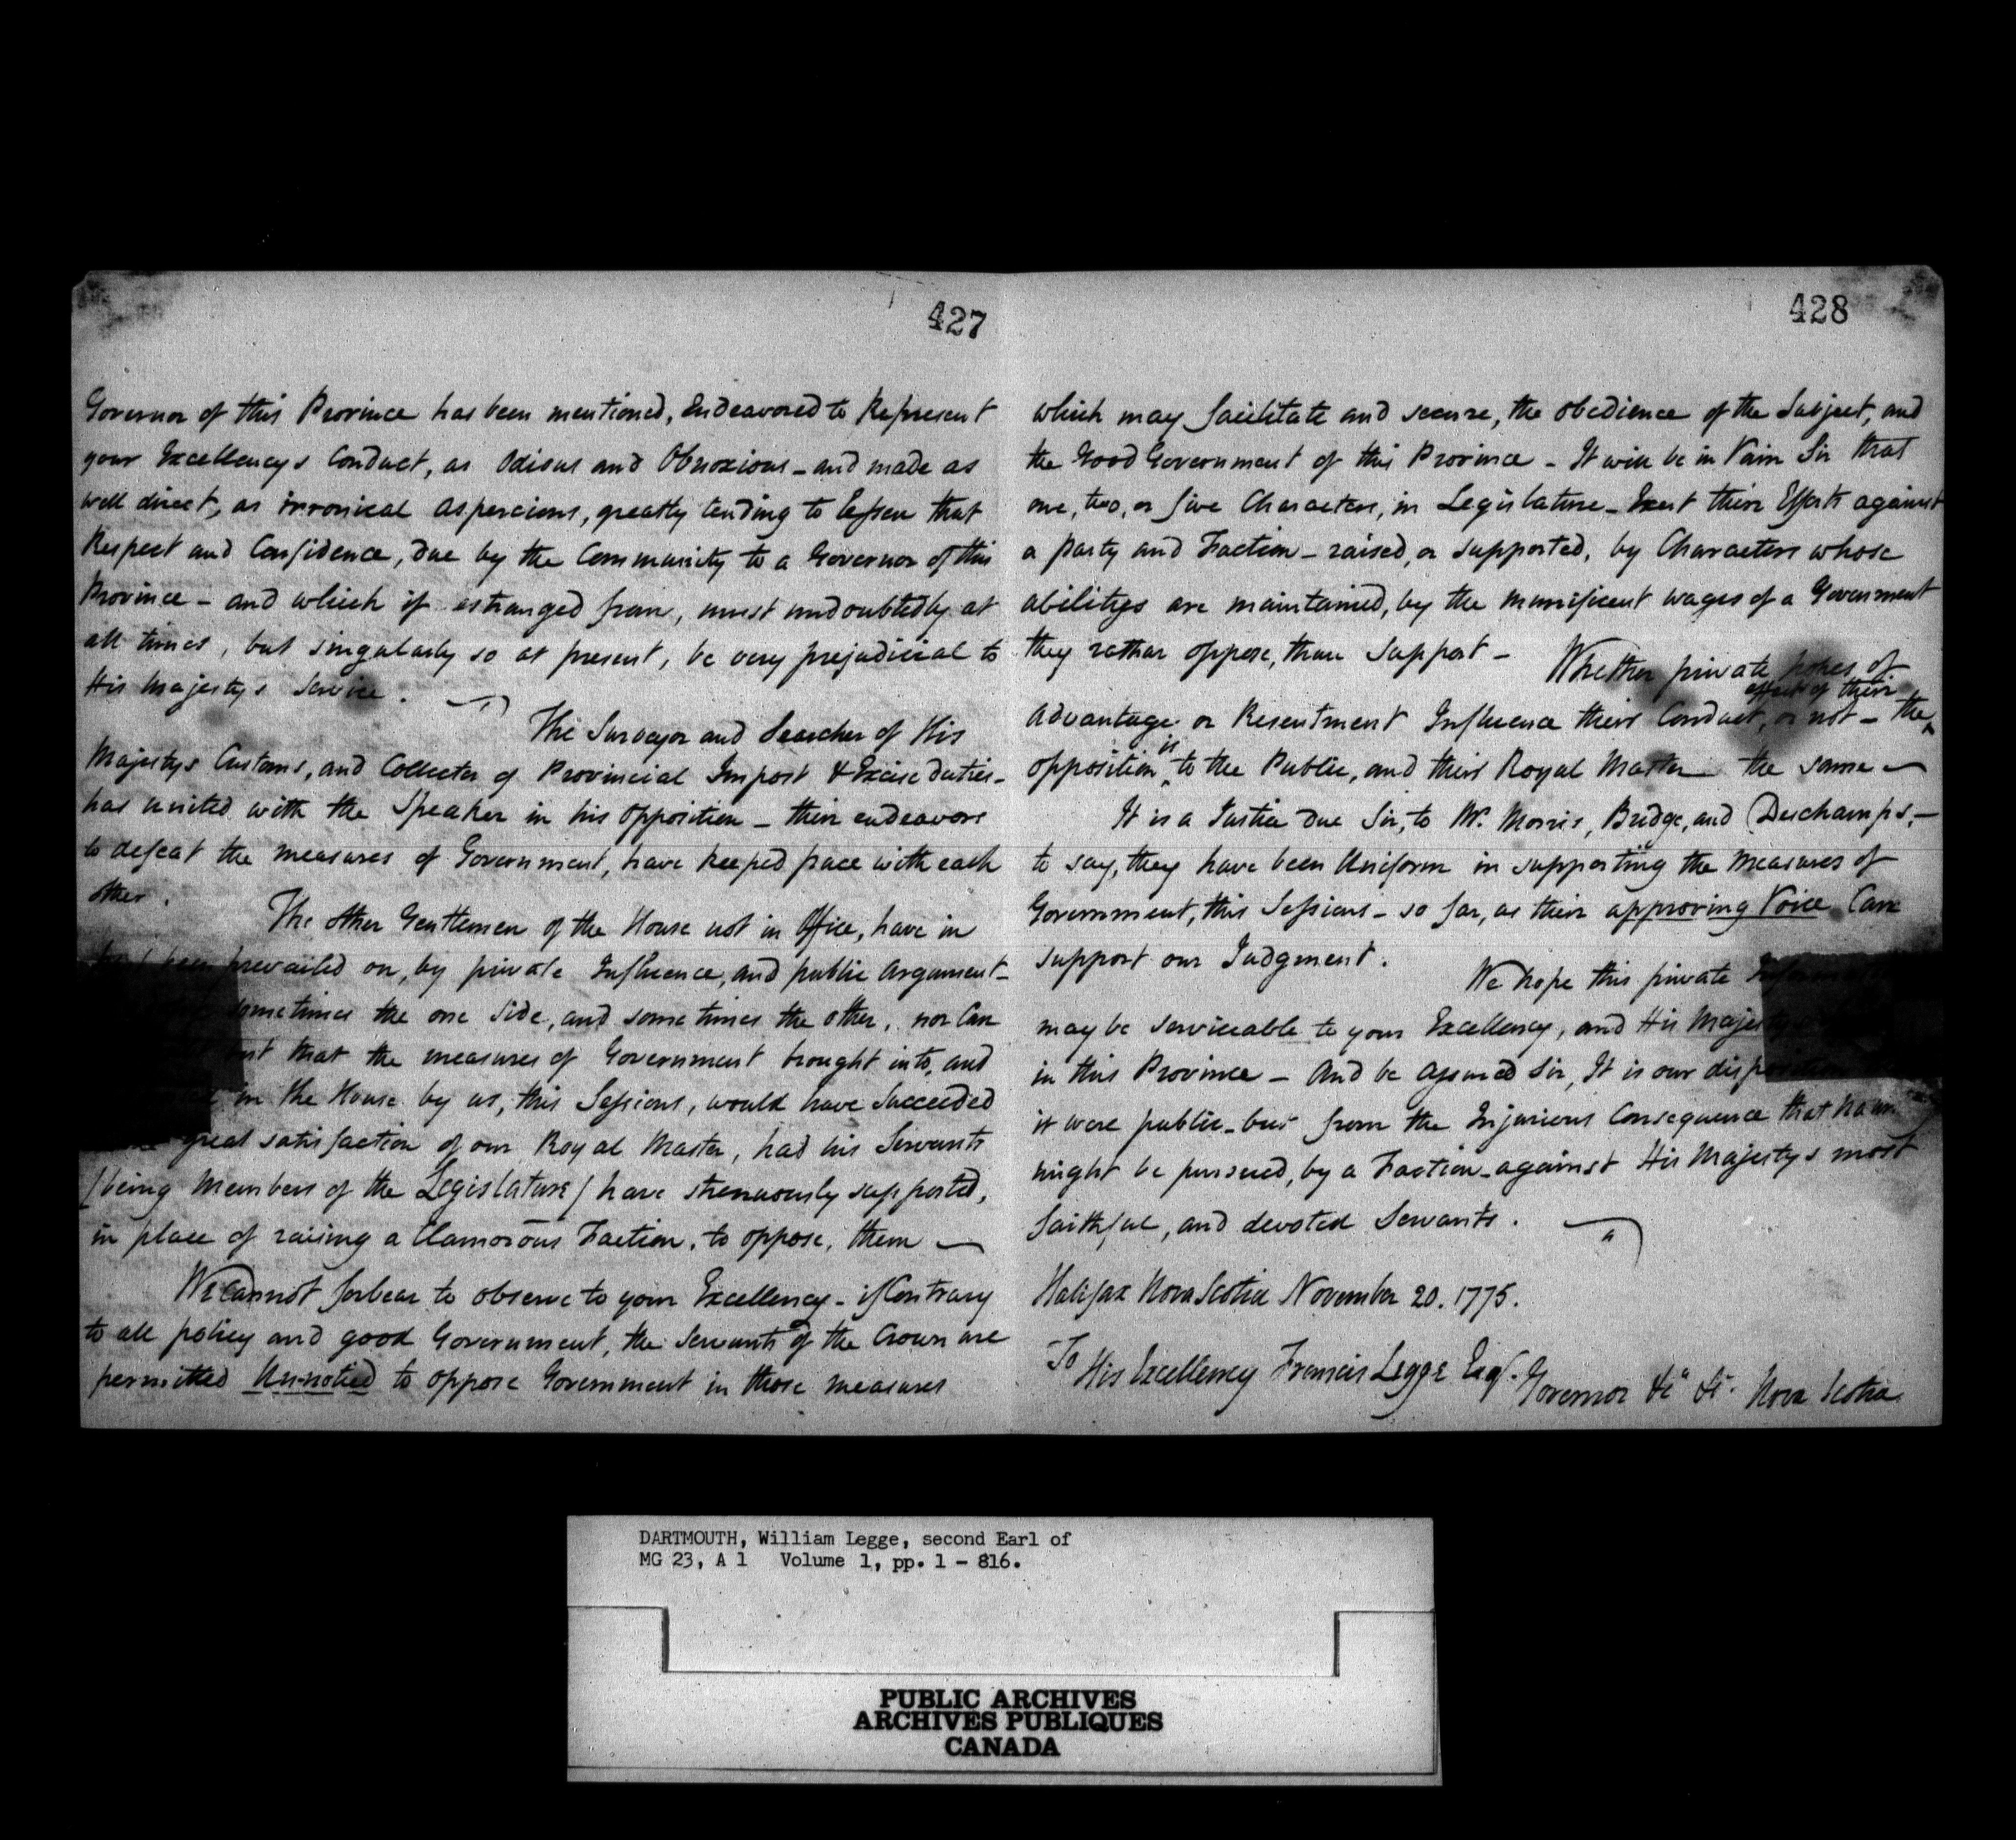 427
Governor of this Province has been mentioned, Endeavored to Represent
your Excellencys Conduct, as Odious and Obnoxious - and made as
well direct, as irronical aspercions, greatly tending to lessen that
Respect and Confidence, due by the Community to a Governor of this
Province - and which if estranged from, must undoubtedly at
all times, but singularly so at present, be very prejudicial to
His Majestys Service.
The Surveyor and Searcher of His
Majestys Customs, and Collector of Provincial Impost & Excise duties -
has united with the Speaker in his opposition - their endeavors
to defeat the measures of Government, have keeped pace with each
other.
The other Gentlemen of the House not in Office, have in
been prevailed on, by private Influence, and public Argument -
sometimes the one side, and sometimes the other, nor Can
but that the measures of Government brought into, and
in the House by us, this Sessions, would have Succeeded
great satisfaction of our Royal Master, had his Servants
/being Members of the Legislature/ have strenuously supported,
in place of raising a Clamorous Faction, to oppose, them
We Cannot forbear to observe to your Excellency - if Contrary
to all policy and good Government, the Servants of the Crown are
permitted Un-noticed to oppose Government in those measures
428
which may facilitate and secure, the obedience of the Subject, and
the Good Government of this Province - It will be in Vain Sir that
one, two, or five Characters, in Legislature - Exert their Efforts against
a party and Faction - raised, or supported, by Characters whose
abilitys are maintained, by the munificent wages of a Government
they rather oppose, than Support -
Whether private hopes of
effect of their
Advantage or Resentment Influence their Conduct, or not - the
is
opposition to the Public, and their Royal Master the same
It is a Justice due Sir, to Mr. Morris, Bridge, and Deschamps, -
to say, they have been Uniform in supporting the Measures of
Government, this Sessions - so far, as their approving Voice Can
support our Judgment.
We hope this private
may be serviceable to your Excellency, and His Majestys
in this Province - And be assured Sir, It is our disposition
it were public - but from the Injurious Consequence that
might be pursued, by a Faction - against His Majestys most
faithful, and devoted Servants.
Halifax Nova Scotia November 20. 1775.
To His Excellency Francis Legge Esqr. Governor &c &c. Nova Scotia
DARTMOUTH, William Legge, second Earl of
MG 23, A 1 Volume 1, pp. 1 - 816.
PUBLIC ARCHIVES
ARCHIVES PUBLIQUES
CANADA